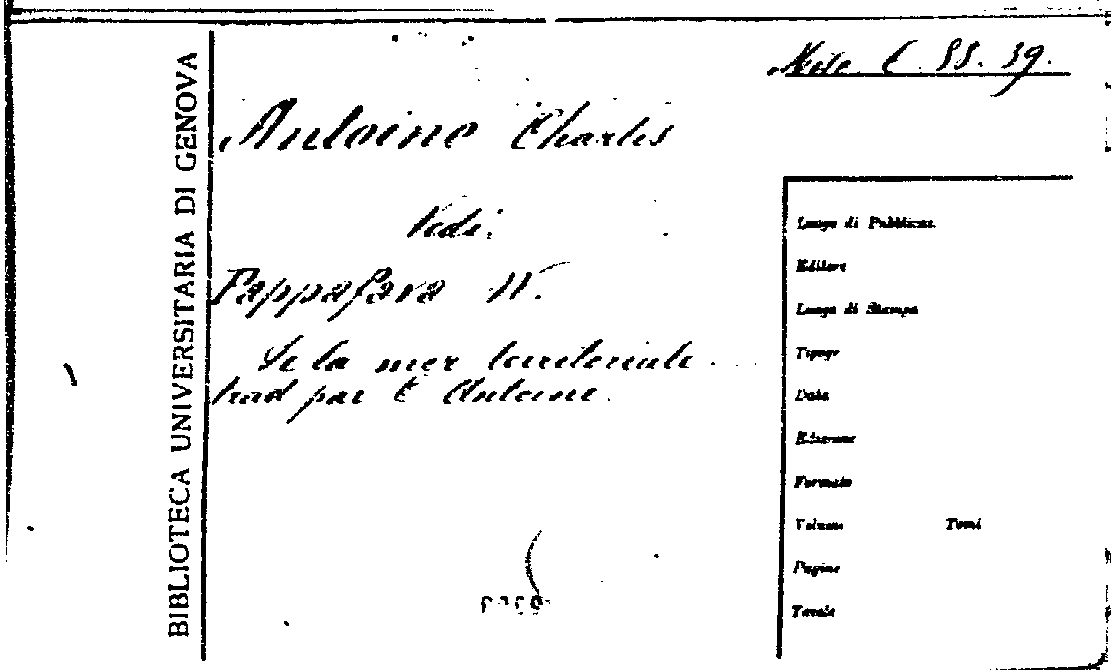 BIBLIOTECA UNIVERSITARIA DI GENOVA
Misc. C. 55. 39.
Antoine Charles
Vedi:
Pappafava V.
De la mer territoriale ...
trad par C Antoine.
Luogo di Pubblicaz.
Editore
Luogo di Stampa
Tipogr
Data
Edizione
Formato
Volumi Tomi
Pagine
Tavole